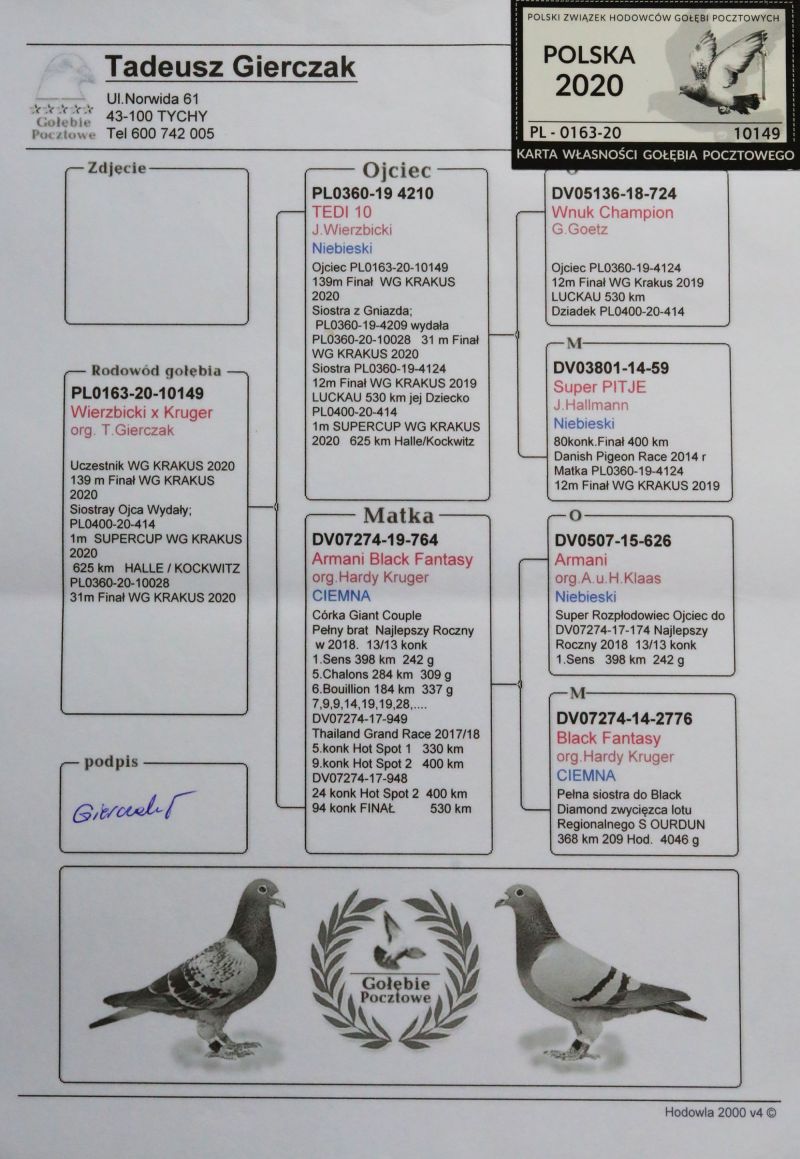 Tadeusz Gierczak
Ul.Norwida 61
43-100 TYCHY
Tel 600 742 005
Gołębie
Pocztowe
POLSKI ZWIĄZEK HODOWCÓW GOŁĘBI POCZTOWYCH
POLSKA
2020
PL - 0163-20 10149
KARTA WŁASNOŚCI GOŁĘBIA POCZTOWEGO
Zdjęcie
Rodowód gołębia
PL0163-20-10149
Wierzbicki x Kruger
org. T.Gierczak
Uczestnik WG KRAKUS 2020
139 m Finał WG KRAKUS
2020
Siostray Ojca Wydały;
PL0400-20-414
1m SUPERCUP WG KRAKUS
2020
625 km HALLE / KOCKWITZ
PL0360-20-10028
31m Finał WG KRAKUS 2020
podpis
Ojciec
PL0360-19 4210
TEDI 10
J.Wierzbicki
Niebieski
Ojciec PL0163-20-10149
139m Finał WG KRAKUS
2020
Siostra z Gniazda;
PL0360-19-4209 wydała
PL0360-20-10028 31 m Finał
WG KRAKUS 2020
Siostra PL0360-19-4124
12m Finał WG KRAKUS 2019
LUCKAU 530 km jej Dziecko
PL0400-20-414
1m SUPERCUP WG KRAKUS
2020 625 km Halle/Kockwitz
Matka
DV07274-19-764
Armani Black Fantasy
org.Hardy Kruger
CIEMNA
Córka Giant Couple
Pełny brat Najlepszy Roczny
w 2018. 13/13 konk
1.Sens 398 km 242 g
5.Chalons 284 km 309 g
6.Bouillion 184 km 337 g
7,9,9,14,19,19,28,....
DV07274-17-949
Thailand Grand Race 2017/18
5.konk Hot Spot 1 330 km
9.konk Hot Spot 2 400 km
DV07274-17-948
24 konk Hot Spot 2 400 km
94 konk FINAŁ 530 km
DV05136-18-724
Wnuk Champion
G.Goetz
Ojciec PL0360-19-4124
12m Finał WG Krakus 2019
LUCKAU 530 km
Dziadek PL0400-20-414
M
DV03801-14-59
Super PITJE
J.Hallmann
Niebieski
80konk.Finał 400 km
Danish Pigeon Race 2014 r
Matka PL0360-19-4124
12m Finał WG KRAKUS 2019
O
DV0507-15-626
Armani
org.A.u.H.Klaas
Niebieski
Super Rozpłodowiec Ojciec do
DV07274-17-174 Najlepszy
Roczny 2018 13/13 konk
1.Sens 398 km 242 g
M
DV07274-14-2776
Black Fantasy
org.Hardy Kruger
CIEMNA
Pełna siostra do Black
Diamond zwycięzca lotu
Regionalnego S OURDUN
368 km 209 Hod. 4046 g
Gołębie
Pocztowe
Hodowla 2000 v4 ©